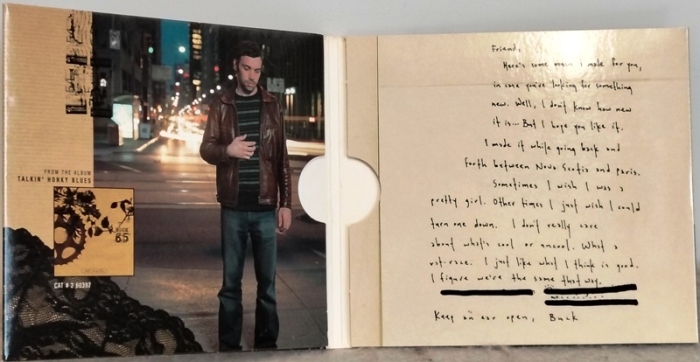 FROM THE ALBUM
TALKIN' HONKY BLUES
BUCK
65
CAT # 2 60397
Friend,
Here's some music I made for you,
in case you're looking for something
new. Well, I don't know how new
it is... But I hope you like it.
I made it while going back and
forth between Nova Scotia and Paris.
Sometimes I wish I was a
pretty girl. Other times I just wish I could
turn one down. I don't really care
about what's cool or uncool. What a
rat-race. I just like what I think is good.
I figure we're the same that way.
Keep an ear open, Buck